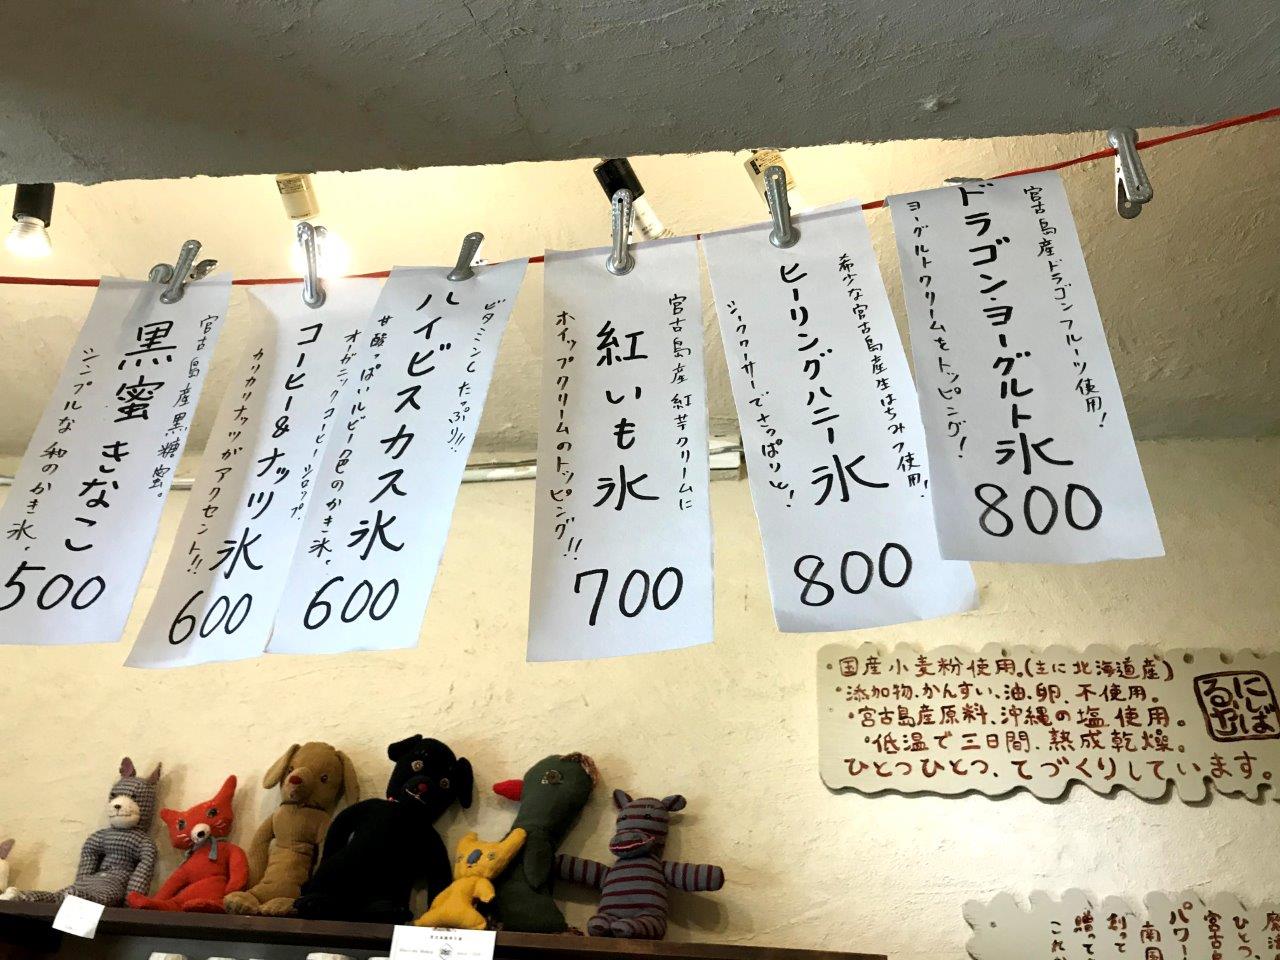 宮古島産ドラゴンフルーツ使用！
ドラゴン・ヨーグルト氷
ヨーグルトクリームをトッピング！
800
希少な宮古島産生はちみつ使用！
ヒーリングハニー氷
シークワーサーでさっぱりと！
800
宮古島産紅芋クリームに
紅いも氷
ホイップクリームのトッピング！！
700
ビタミンCたっぷり！！
ハイビスカス氷
甘酸っぱいルビー色のかき氷。
600
オーガニックコーヒーシロップ。
コーヒー&ナッツ氷
カリカリナッツがアクセント！！
600
宮古島産黒糖蜜。
黒蜜きなこ
シンプルな和のかき氷。
500
・国産小麦粉使用。(主に北海道産)
・添加物、かんすい、油、卵、不使用。
・宮古島産原料、沖縄の塩使用。
・低温で三日間、熟成乾燥。
ひとつひとつ、てづくりしています。
ひとつ
宮古島
パワー
南国
創って
贈って
これか